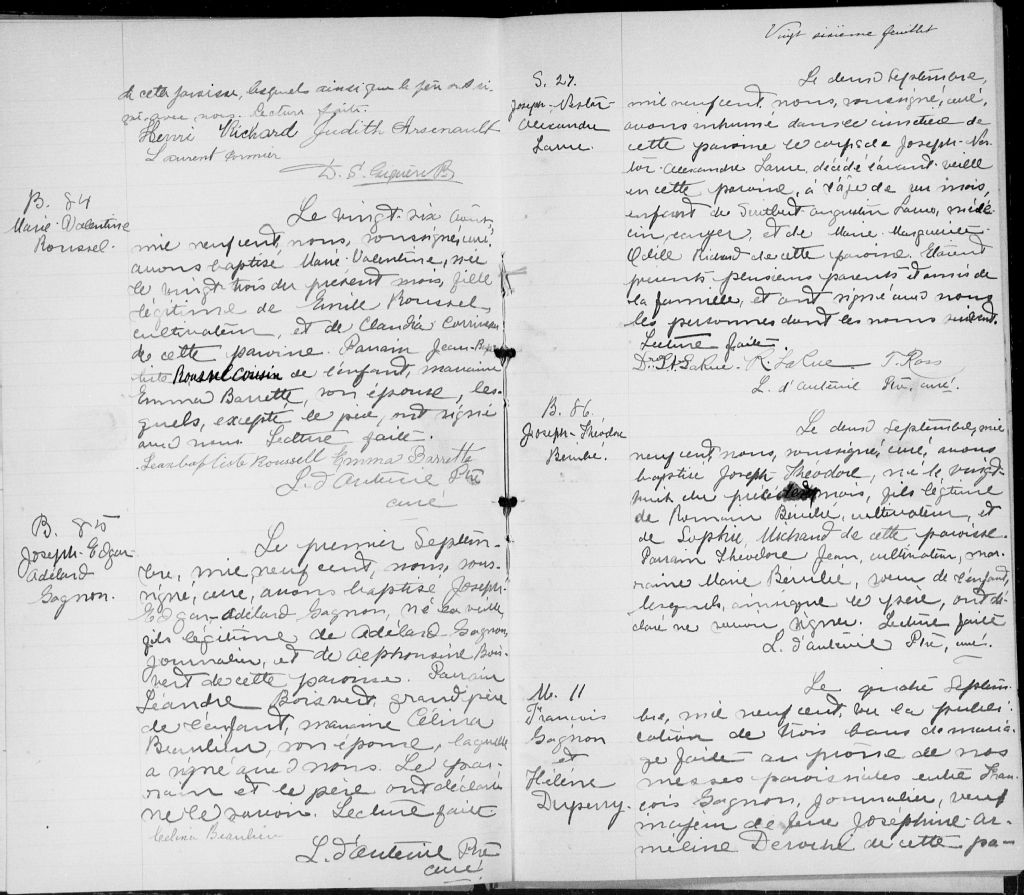 de cette paroisse, lesquels ainsi que le père ont si-
gné avec nous. Lecture faite.
Henri Richard Judith Arsenault
Laurent Cormier
B. 84
Marie-Valentine
Roussel.
Le vingt-six août,
mil neuf cent, nous, soussigné, curé,
avons baptisé Marie-Valentine, née
le vingt trois du présent mois, fille
légitime de Emile Roussel,
cultivateur, et de Claudia
de cette paroisse. Parrain Jean-Bap-
tiste Roussel cousin de l'enfant, marraine
Emma Barrette, son épouse, les-
quels, excepté le père, ont signé
avec nous. Lecture faite.
Jean baptiste Roussell Emma Barrette
L. d'Auteuil Ptre
curé
B. 85
Joseph-Edgar
Adélard
Gagnon.
Le premier Septem-
bre, mil neuf cent, nous, sous-
signé, curé, avons baptisé Joseph-
Edgar-Adélard Gagnon, né la veille,
fils légitime de Adélard Gagnon,
journalier, et de Alphonsine Bois-
vert de cette paroisse. Parrain
Léandre Boisvert, grand père
de l'enfant, marraine Célina
Beaulieu, son épouse, laquelle
a signé avec nous. Le par-
rain et le père ont déclaré
ne le savoir. Lecture faite.
Celina Beaulieu
L. d'Auteuil Ptre
curé
Vingt sixième feuillet
S. 27.
Joseph-Nestor-
Alexandre
Larue.
Le deux Septembre,
mil neuf cent, nous, soussigné, curé,
avons inhumé dans le cimetière de
cette paroisse le corps de Joseph-Nes-
tor-Alexandre Larue, décédé l'avant-veille
en cette paroisse, à l'âge de un mois,
enfant de Augustin Larue, méde-
cin, écuyer, et de Marie-Marguerite-
Odile Richard de cette paroisse. Etaient
présents plusieurs parents et amis de
la famille, et ont signé avec nous
les personnes dont les noms suivent.
Lecture faite.
LaRue. R. LaRue T. Ross
L. d'Auteuil Ptre, curé.
B. 86.
Joseph-Théodore
Bérubé.
Le deux Septembre, mil
neuf cent, nous, soussigné, curé, avons
baptisé Joseph Théodore, né le vingt-
huit du précédent mois, fils légitime
de Romain Bérubé, cultivateur, et
de Sophie Michaud de cette paroisse.
Parrain Théodore Jean, cultivateur, mar-
raine Marie Bérubé, soeur de l'enfant,
lesquels, ainsi que le père, ont dé-
claré ne savoir signer. Lecture faite
L. d'Auteuil Ptre, curé.
M. 11
François
Gagnon
et
Hélène
Duperry.
Le quatre Septem-
bre, mil neuf cent, vu la publi-
cation de trois bans de maria-
ge faite au prône de nos
messes paroissiales entre Fran-
çois Gagnon, journalier, veuf
majeur de feue Joséphine-Ar-
méline Deroche de cette pa-